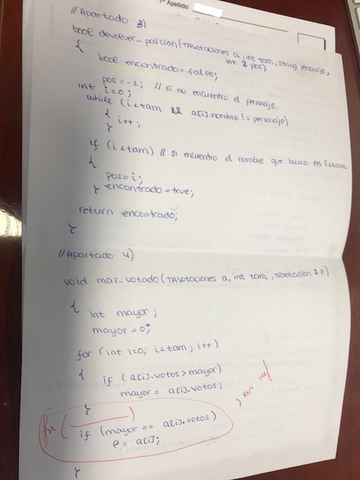 1º Apellido:
//Apartado 3)
bool devolver_posicion(TRVotaciones a, int tam, string personaje,
int & pos)
{
bool encontrado=false;
pos=-1; // si no encuentro el personaje.
int i=0;
while (i<tam && a[i].nombre != personaje)
{
i++;
}
if (i<tam) // si encuentro el nombre que busco es i<tam
{
pos=i;
encontrado=true;
}
return encontrado;
}
//Apartado 4)
void mas_votado(TRVotaciones a, int tam, TRVotacion & p)
{
int mayor;
mayor=0;
for (int i=0; i<tam; i++)
{ if (a[i].votos>mayor)
mayor = a[i].votos;
}
for (
if (mayor == a[i].votos)
p = a[i];
}